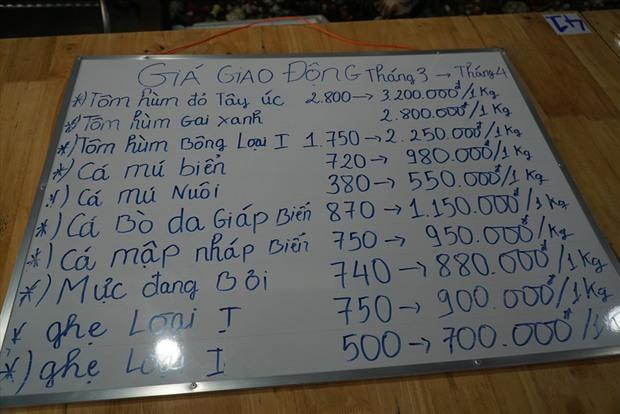 GIÁ GIAO ĐỘNG Tháng 3 → Tháng 4
*) Tôm hùm đỏ Tây úc 2.800 → 3.200.000đ/1 Kg
*) Tôm hùm Gai xanh 2.800.000đ/1 Kg
*) Tôm hùm Bông Loại I 1.750 → 2.250.000đ/1 Kg
*) Cá mú biển 720 → 980.000đ/1 Kg
*) Cá mú Nuôi 380 → 550.000đ/1 Kg
*) Cá Bò da Giáp Biển 870 → 1.150.000đ/Kg
*) Cá mập nháp Biển 750 → 950.000đ/Kg
*) Mực đang Bơi 740 → 880.000đ/1 Kg
* ghẹ Loại I 750 → 900.000đ/1 Kg
*) ghẹ Loại I 500 → 700.000đ/1
41